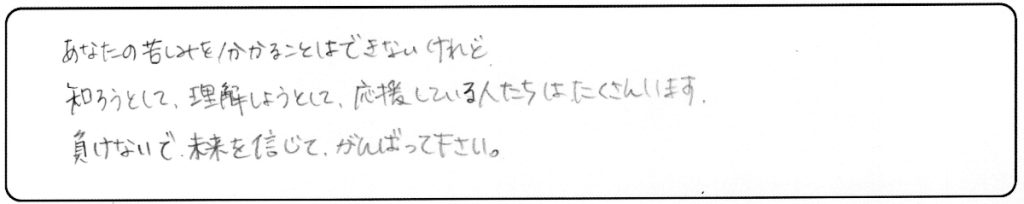 あなたの苦しみを分かることはできないけれど
知ろうとして、理解しようとして、応援している人たちはたくさんいます。
負けないで、未来を信じて、がんばって下さい。